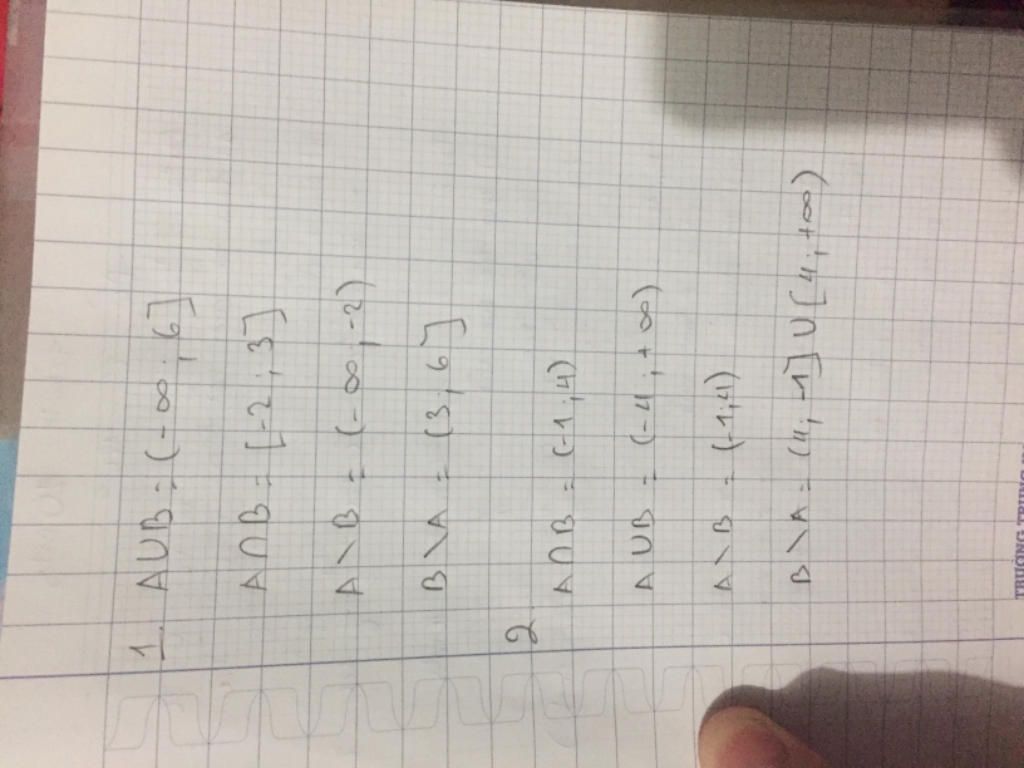 1. A∪B = (-∞; 6]
A∩B = [-2; 3]
A \ B = (-∞; -2)
B \ A = (3; 6]
2. A∩B = (-1; 4)
A∪B = (-4; +∞)
A \ B = (-1; 4)
B \ A = (4; -1] ∪ [4; +∞)
TRƯỜNG TRUNG